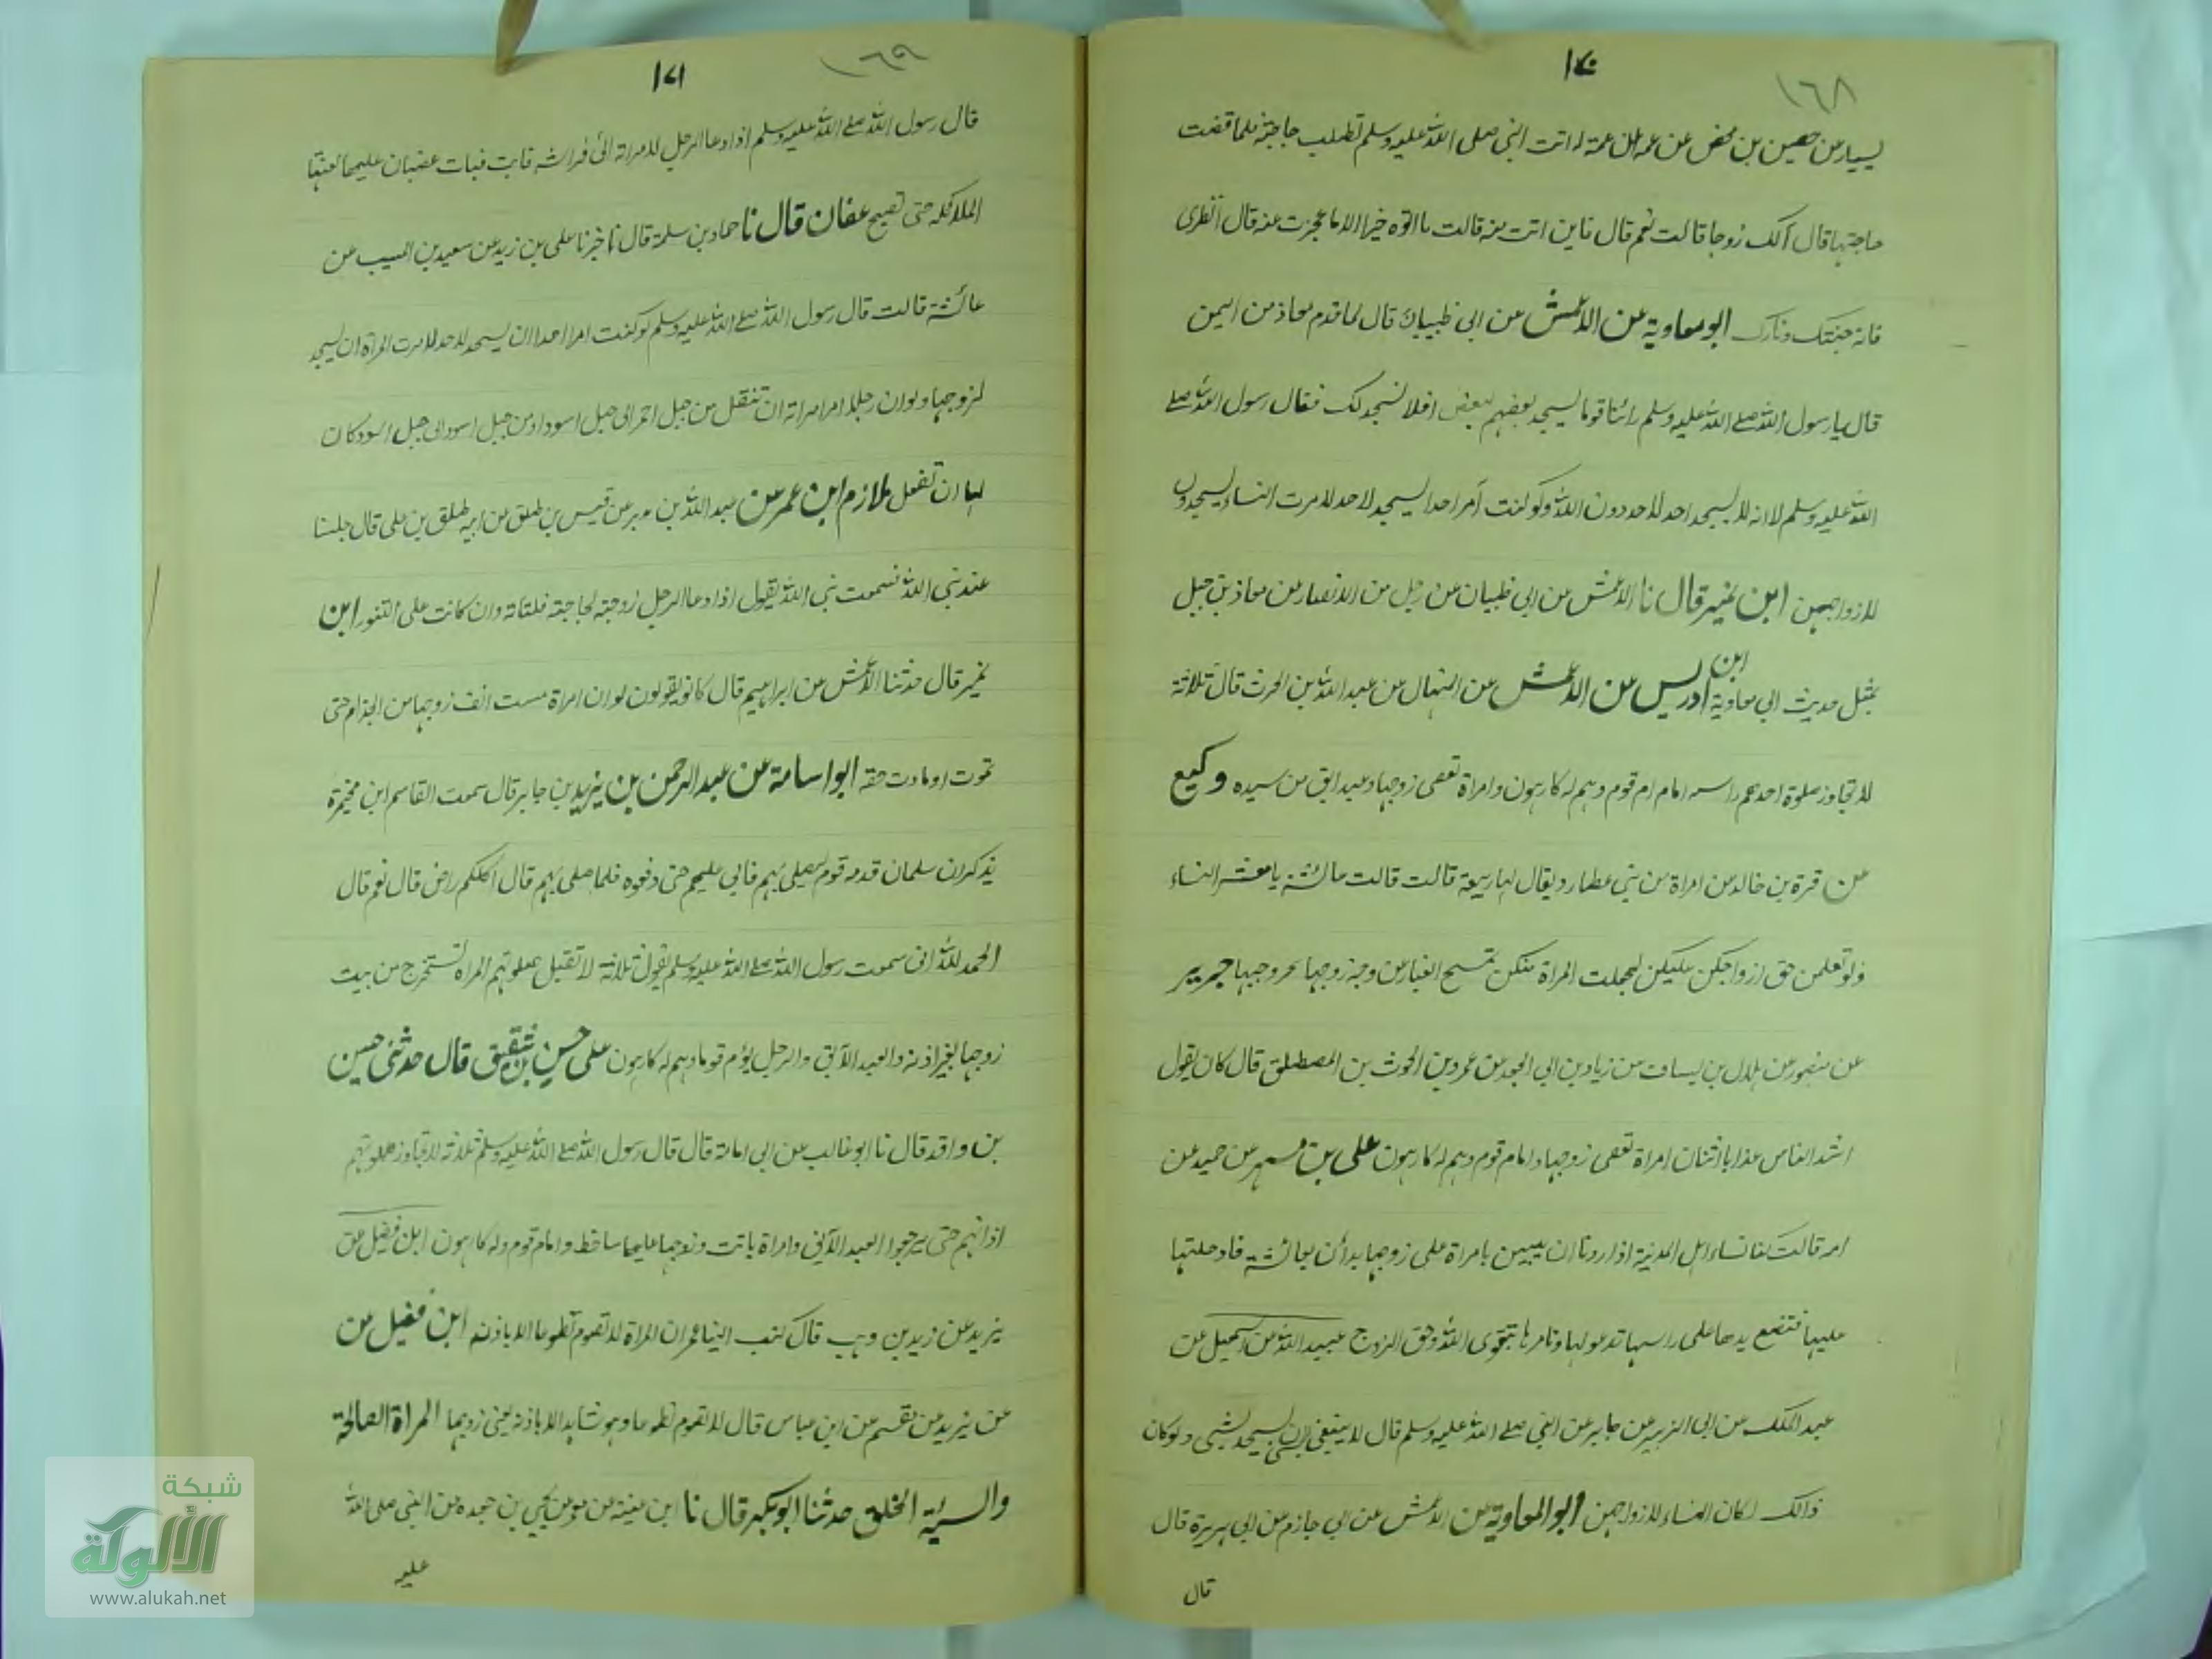 ١٦٨
١٧٠
يسار عن حصين بن محصن عن عمة له اتت النبي صلى الله عليه وسلم تطلب حاجة فلما قضت
حاجتها قال الك زوجا قالت نعم قال فاين انت منه قالت ما الوه خيرا الا ما عجزت عنه قال انظرى
فانه جنتك ونارك ابو معاوية عن الاعمش عن ابي ظبيان قال لما قدم معاذ من اليمن
قال يا رسول الله صلے الله عليه وسلم رائنا قوما يسجد بعضهم لبعض افلا نسجد لك فقال رسول الله صلے
الله عليه وسلم لا انه لا يسجد احد لاحد دون الله ولو كنت آمر احدا يسجد لاحد لامرت النساء يسجدن
لازواجهن ابن نمير قال نا الاعمش عن ابي ظبيان عن رجل من الانصار عن معاذ بن جبل
بمثل حديث ابي معاوية ابن ادريس عن الاعمش عن المنهال عن عبد الله بن الحرث قال ثلاثة
لا تجاوز صلوة احدهم راسه امام ام قوم وهم له كارهون وامراة تعصى زوجها وعبد ابق من سيده وكيع
عن قرة بن خالد عن امراة من بني عطارد يقال لها ربيعة قالت قالت عائشة يا معشر النساء
ولو تعلمن حق ازواجكن عليكن لجعلت المراة منكن تمسح الغبار عن وجه زوجها بحر وجهها جرير
عن منصور عن هلال بن يساف عن زياد بن ابي الجعد عن عمرو بن الحرث بن المصطلق قال كان يقول
اشد الناس عذابا اثنان امراة تعصى زوجها وامام قوم وهم له كارهون على بن مسهر عن حميد عن
امه قالت كنا نساء اهل المدينة اذا اردنا ان يبنين بامراة على زوجها بدأن بعائشة فادخلتها
عليها فتضع يدها على راسها تدعو لها وتامرها بتقوى الله وحق الزوج عبيد الله عن اسمعيل عن
عبد الملك عن ابي الزبير عن جابر عن النبي صلے الله عليه وسلم قال لا ينبغي لشئ ان يسجد لشئ ولو كان
ذالك لكان النساء لازواجهن ابو المعاوية عن الاعمش عن ابي حازم عن ابي هريرة قال
قال
١٦٩
١٧١
قال رسول الله صلے الله عليه وسلم اذا دعا الرجل لامراته الى فراشه فابت فبات غضبان عليها لعنتها
الملائكة حتى تصبح عفان قال نا حماد بن سلمة قال نا اخبرنا على بن زيد عن سعيد بن المسيب عن
عائشة قالت قال رسول الله صلے الله عليه وسلم لو كنت امرا احدا ان يسجد لاحد لامرت المراة ان يسجد
لزوجها ولو ان رجلا امر امراته ان تنتقل من جبل احمر الى جبل اسود او من جبل اسود الى جبل اسود كان
لها ان تفعل ملازم ابن عمر عن عبد الله بن بدر عن قيس بن طلق عن ابيه طلق بن على قال جلسنا
عند نبي الله فسمعت نبي الله يقول اذا دعا الرجل زوجته لحاجته فلتاته وان كانت على التنور ابن
نمير قال حدثنا الاعمش عن ابراهيم قال كانو يقولون لو ان امراة مست انف زوجها من الجذام حتى
تموت او ما ادت حقه ابو اسامة عن عبد الرحمن بن يزيد بن جابر قال سمعت القاسم ابن مخيمرة
يذكر ان سلمان قدمه قوم يصلي بهم فابى عليهم حتى دفعوه فلما صلى بهم قال اكلكم راض قال نعم قال
الحمد لله اني سمعت رسول الله صلے الله عليه وسلم يقول ثلاثة لا تقبل صلوتهم المراة تستخرج من بيت
زوجها بغير اذنه والعبد الآبق والرجل يؤم قوما وهم له كارهون على حسن بن شقيق قال حدثنى حسين
بن واقد قال نا ابو غالب عن ابي امامة قال قال رسول الله صلے الله عليه وسلم ثلاثة لا تجاوز صلوتهم
اذانهم حتى يرجعوا العبد الآبق وامراة باتت وزوجها عليها ساخط وامام قوم وله كارهون ابن فضيل عن
يزيد عن زيد بن وهب قال كتب الينا عمر ان المراة لا تصوم تطوعا الا باذنه ابن فضيل عن
عن يزيد عن مقسم عن ابن عباس قال لا تصوم تطوعا وهو شاهد الا باذنه يعني زوجها المراة الصالحة
والسيئة الخلق حدثنا ابو بكر قال نا ابن عيينة عن عمرو عن يحيى بن جعده عن النبي صلى الله
عليه
شبكة
الألوكة
www.alukah.net